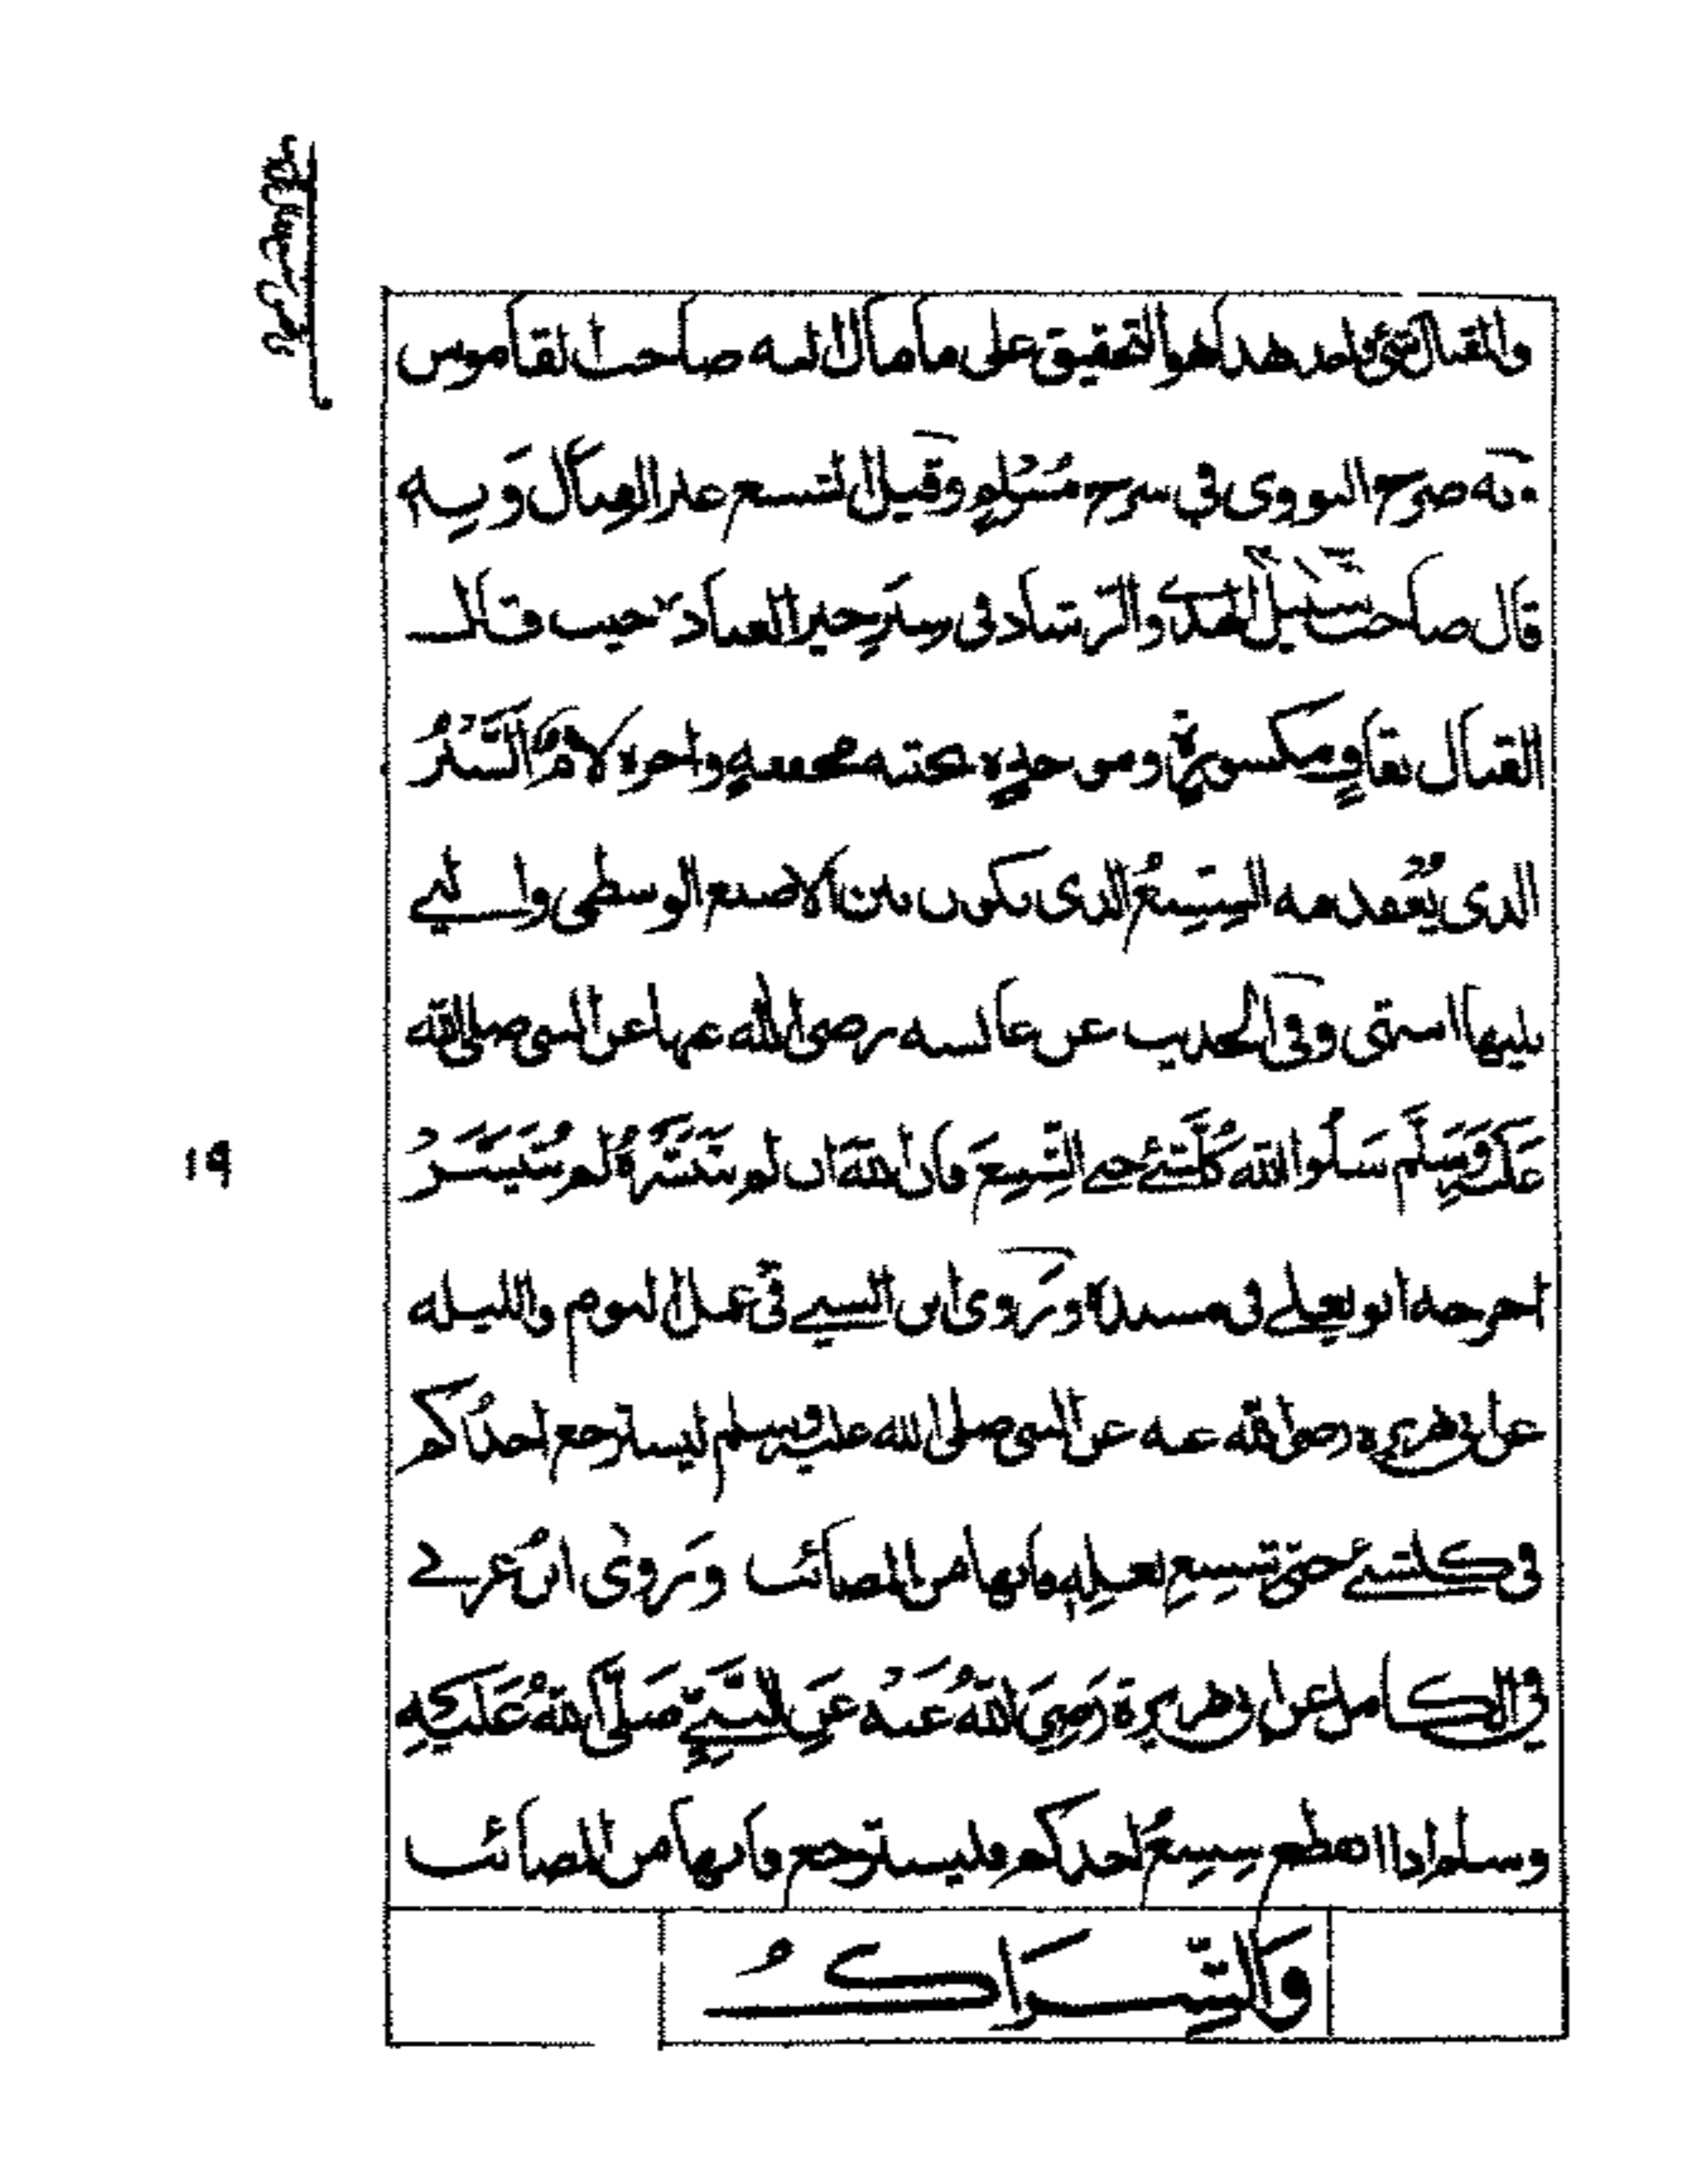 والقبال شئ واحد هذا هو التحقيق على ما مال اليه صاحب القاموس
وبه صرح النووي في شرح مسلم وقيل الشسع غير القبال وبه
قال صاحب سبيل الهدى والرشاد في سير خير العباد حيث قال
القبال بقاف مكسورة وموحدة تحتيه مخففة واخره لام السَّيْرُ
الذى يُعقد فيه الشِسعُ الذى يكون بين الاصبع الوسطى والتي
يليها انتهى وفى الحديث عن عائشه رضى الله عنها عن النبى صلى الله
عَلَيْهِ وَسَلَّم سَلُوا الله كُلَّ شئ حتى الشِّسعَ فان اللهَ ان لم يُيَسِّرَهُ لم يَتَيَسَّرُ
اخرجه ابو يعلى فى مسنده وروى ابن السني فى عمل اليوم والليله
عن ابى هريره رضى الله عنه عن النبى صلى الله عليه وسلم ليسترجع احدُكم
فى كل شئ حتى شسع نعله فانها من المصائب وروى ابن عدي
في الكامل عن ابى هريرة رَضِيَ اللهُ عَنْه عَنِ النَّبِيِّ صَلَّى اللهُ عَلَيْهِ
وسلم اذا انقطع شِسعُ احدكم فليسترجع فانها من المصائب
وَالشِّرَاكُ
١٩